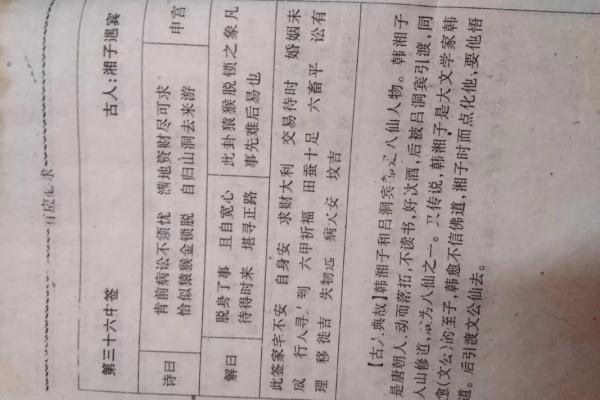 有应
求
第三十六中签
古人：湘子遇宾
诗曰
肯前病讼不须忧 满地资财尽可求
恰似猿猴金锁脱 自归山洞去来游
申宫
解曰
脱身了事 且自宽心
待得时来 堪寻正路
此卦猿猴脱锁之象凡
事先难后易也
此签家宅不安 自身安 求财大利 交易待时 婚姻未
成 行人寻 到 六甲祈福 田蚕十足 六畜平 讼有
理 移徒吉 失物远 病人安 坟吉
【古人典故】韩湘子和吕洞宾 是八仙人物。韩湘子
是唐朝人,动而落拓,不读书,好饮酒,后被吕洞宾引渡,同
入山修道,成为八仙之一。又传说,韩湘子是大文学家韩
愈(文公)的至子,韩愈不信佛道,湘子时而点化他,要他悟
道。后引渡文公仙去。